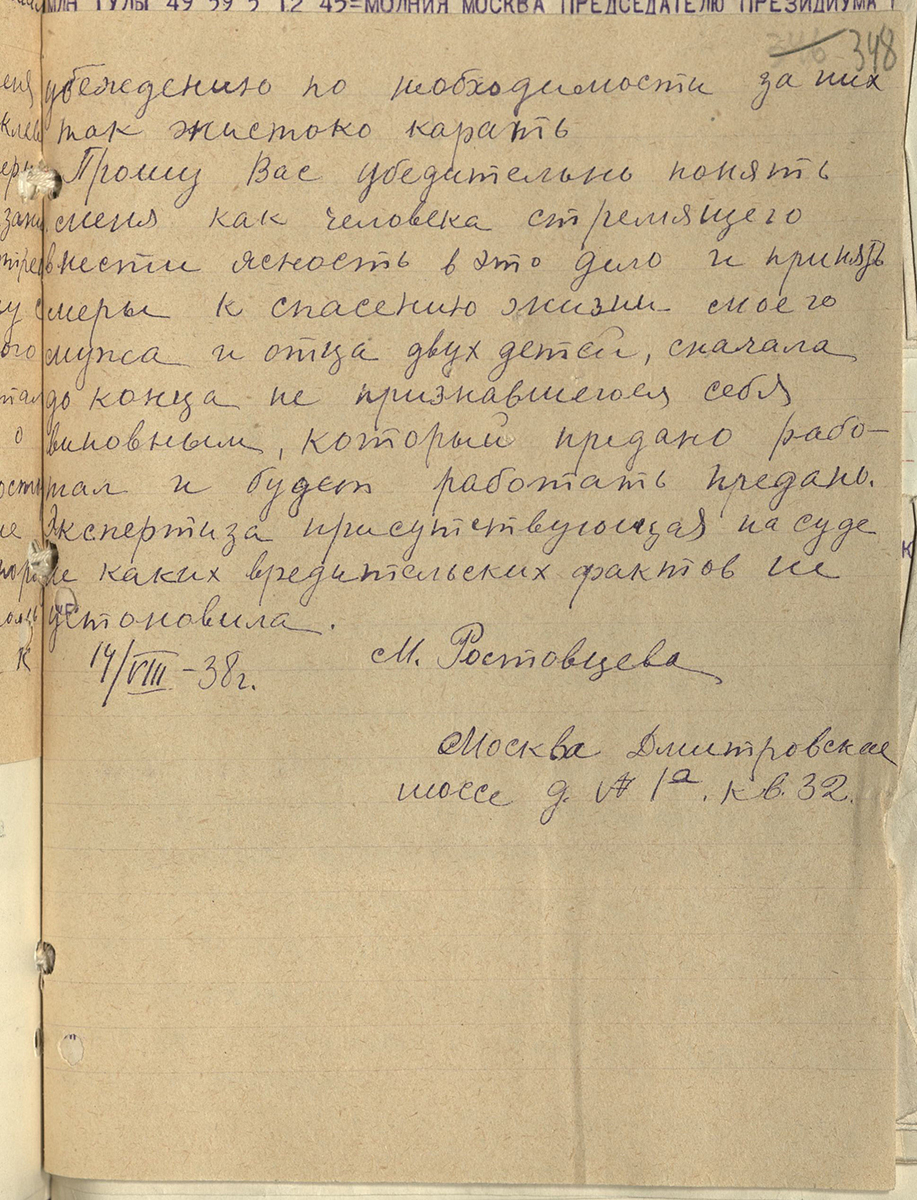 МЛН ТУЛЫ 49 59 5 12 45=МОЛНИЯ МОСКВА ПРЕДСЕДАТЕЛЮ ПРЕЗИДИУМА
348
убеждению по необходимости за них
так жистоко карать
Прошу Вас убедительно понять
меня как человека стремящего
внести ясность в это дило и принять
меры к спасению жизни моего
мужа и отца двух детей, сначала
до конца не признавшегося себя
виновным, который предано рабо-
тал и будет работать предано.
Экспертиза присутствующая на суде
не каких вредительских фактов не
установила.
14/VIII-38г. М. Ростовцева
Москва Дмитровское
шоссе д. № 1а. кв. 32.